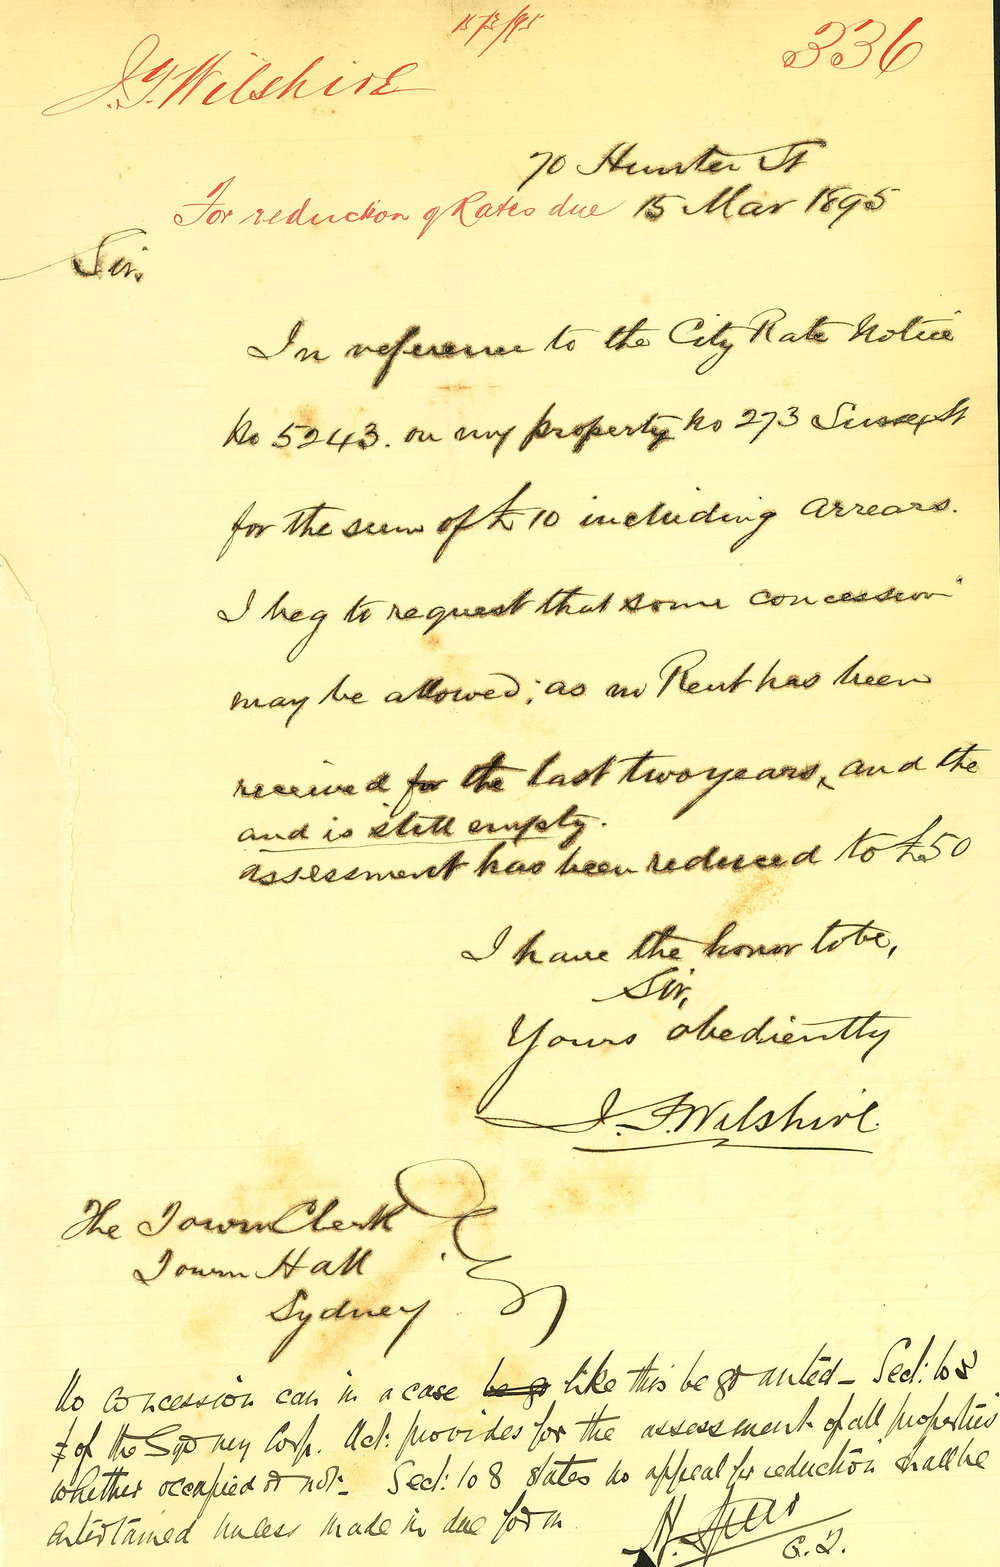 15/3/95
336
J. F. Wilshire
70 Hunter St
For reduction of Rates due 15 Mar 1895
Sir.
In reference to the City Rate Notice
No 5243. on my property No 273 Sussex St
for the sum of £10 including arrears.
I beg to request that some concession
may be allowed; as no Rent has been
received for the last two years, and the
and is still empty.
assessment has been reduced to £50
I have the honor to be,
Sir,
Yours obediently
J. F. Wilshire.
The Town Clerk
Town Hall
Sydney
No concession can in a case be gr like this be granted - Sect: 105
of the Sydney Corp. Act: provides for the assessment of all properties
whether occupied or not - Sect: 108 states no appeal for reduction shall be
entertained unless made in due form
H.
C. T.